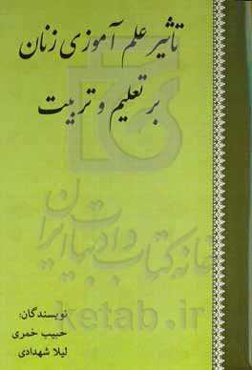 تاثیر علم آموزی زنان
بر تعلیم و تربیت
خانه کتاب و ادبیات ایران
نویسندگان:
حبیب خمری
لیلا شهدادی
ketab.ir